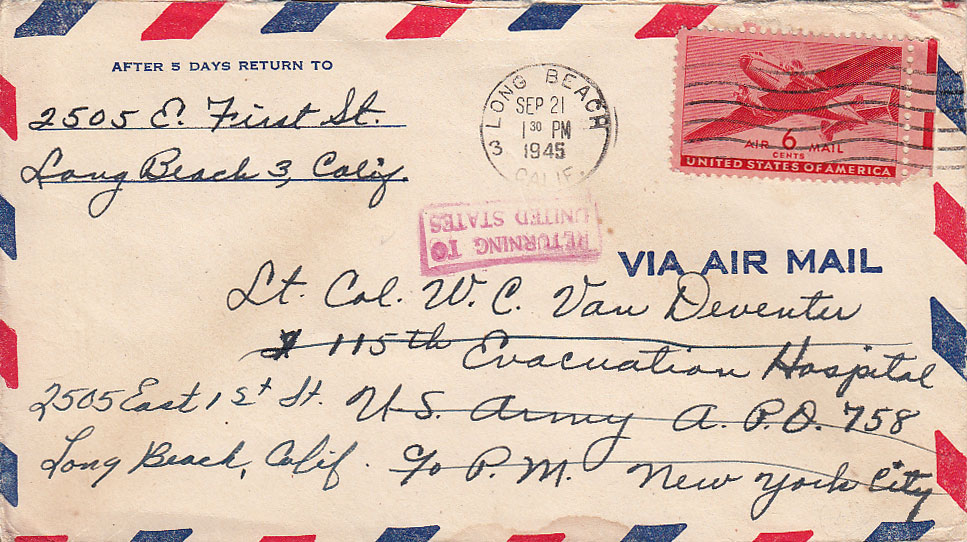 AFTER 5 DAYS RETURN TO
2505 E. First St.
Long Beach 3, Calif.
LONG BEACH
SEP 21
1 30 PM
1945
3
CALIF.
AIR 6 MAIL
CENTS
UNITED STATES OF AMERICA
RETURNING TO
UNITED STATES
VIA AIR MAIL
Lt. Col. W. C. Van Deventer
115th Evacuation Hospital
2505 East 1st St. U.S. Army A.P.O. 758
Long Beach, Calif. c/o P.M. New York City